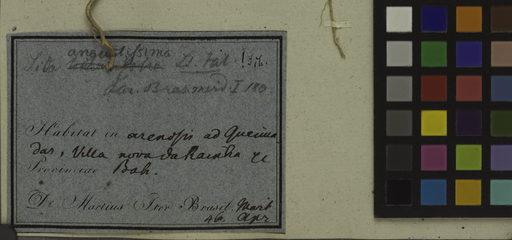 Sida angustissima St. Hil.
Flor. Bras. merid. I 180.
Habitat in arenosis ad Queima
das, Villa nova da Rainha &
Provinciae Bah.
Dr. Martius Iter Brasil. Mart
Apr